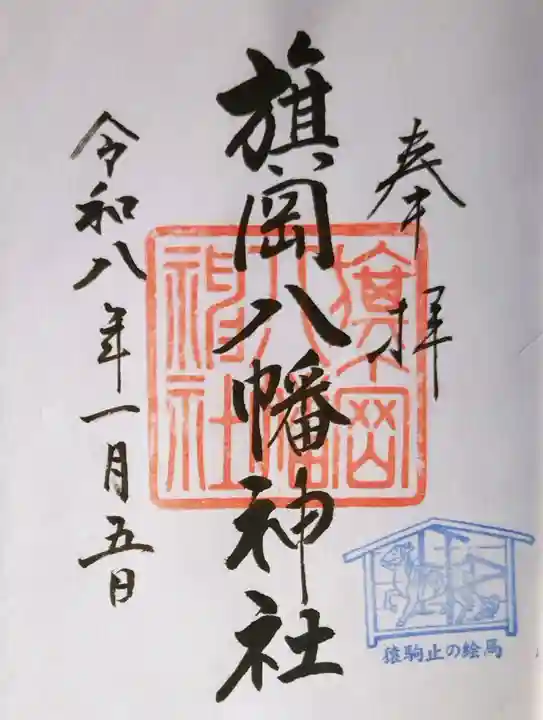 奉拝
旗岡八幡神社
令和八年一月五日
旗岡
八幡
神社
猿駒止の絵馬